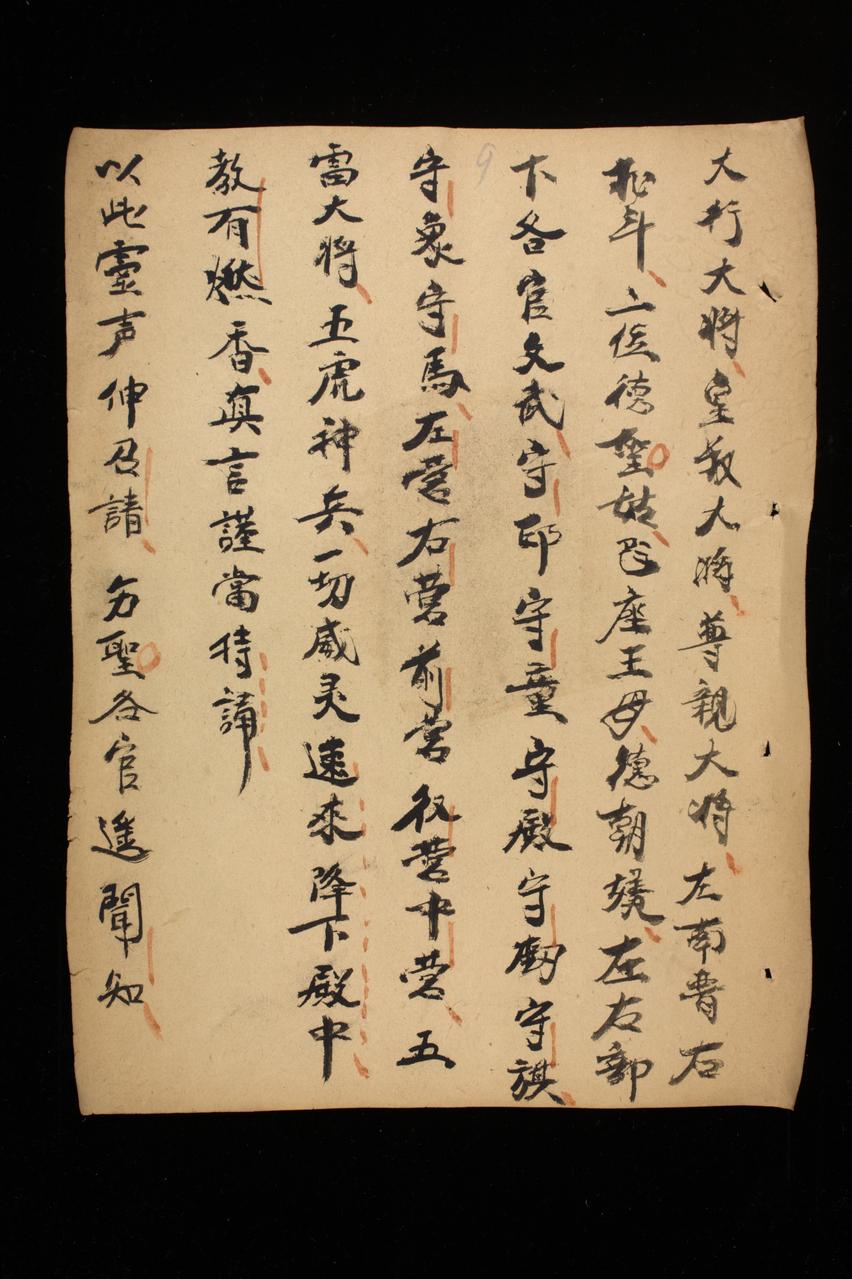 大行大将皇教大将尊親大将左南曹右
北斗二位德聖姑𠃅座王母德朝婆左右部
下各官文武守印守童守殿守劔守旗
守象守馬左营右营前营後营中营五
雷大将五虎神兵一切威灵速来降下殿中
教有燃香真言謹當持誦
以此灵声伸召請 列聖各官遥聞知
9